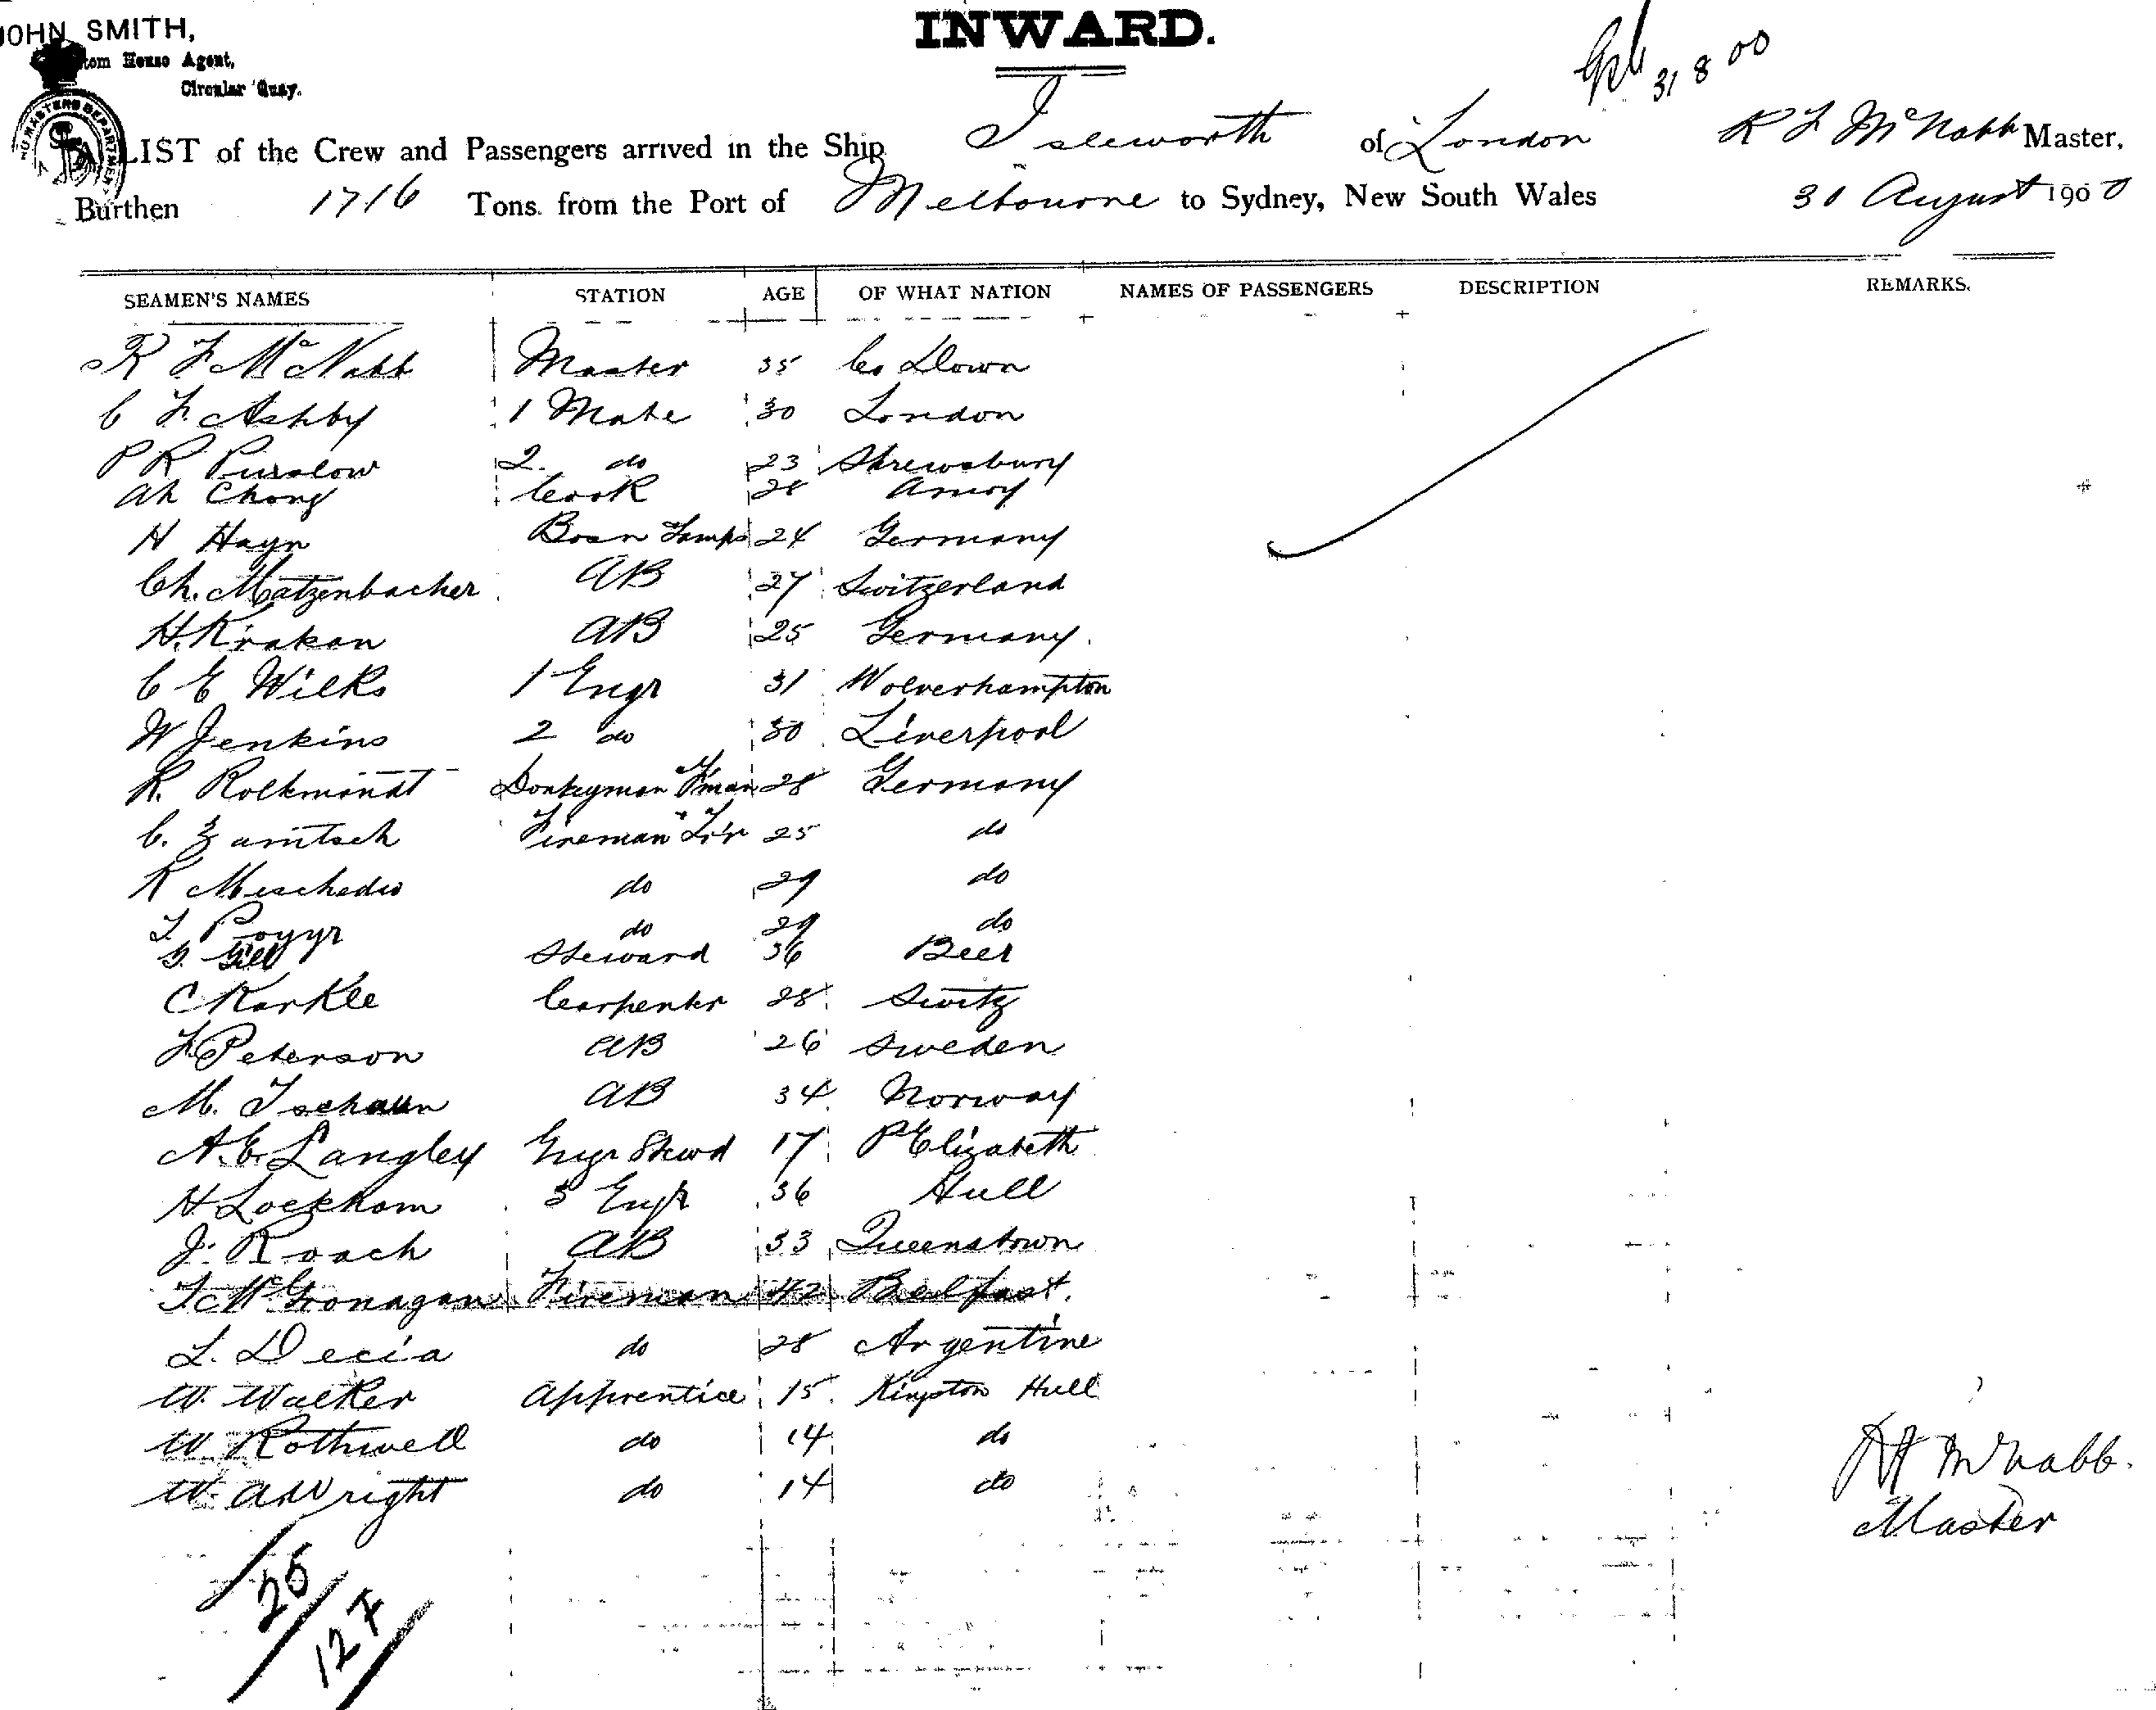 JOHN SMITH,
Custom House Agent,
Circular Quay.
INWARD.
31 8 00
A LIST of the Crew and Passengers arrived in the Ship Isleworth of London R F McNabb Master,
Burthen 1716 Tons from the Port of Melbourne to Sydney, New South Wales 31 August 1900
SEAMEN'S NAMES STATION AGE OF WHAT NATION NAMES OF PASSENGERS DESCRIPTION REMARKS.
R F McNabb Master 35 Co Down
C F Ashby 1 Mate 30 London
P R Purslow 2 do 23 Shrewsbury
Ah Chong Cook 28 Amoy
H Hayn Bosn Lamps 24 Germany
Ch. Matzenbacher AB 27 Switzerland
H. Krakan AB 25 Germany.
C E Wilks 1 Engr 31 Wolverhampton
W Jenkins 2 do 30 Liverpool
R. Rolkmandt Donkeyman F'man 28 Germany
C. Zamtsch Fireman Tr'r 25 do
R Meschedis do 29 do
do 29 do
G. Gill Steward 36 Beer
C Karkle Carpenter 28 Switz
F. Peterson AB 26 Sweden
M. Tschaun AB 34 Norway
A. E. Langley Engr Stewd 17 P Elizabeth
H Lockham 3 Engr 36 Hull
J. Roach AB 33 Queenstown
T McGonagan Fireman 42 Belfast.
L. Decia do 28 Argentine
W. Walker Apprentice 15 Kingston Hull
W Rothwell do 14 do
W. A Wright do 14 do
R F McNabb.
Master
25
127